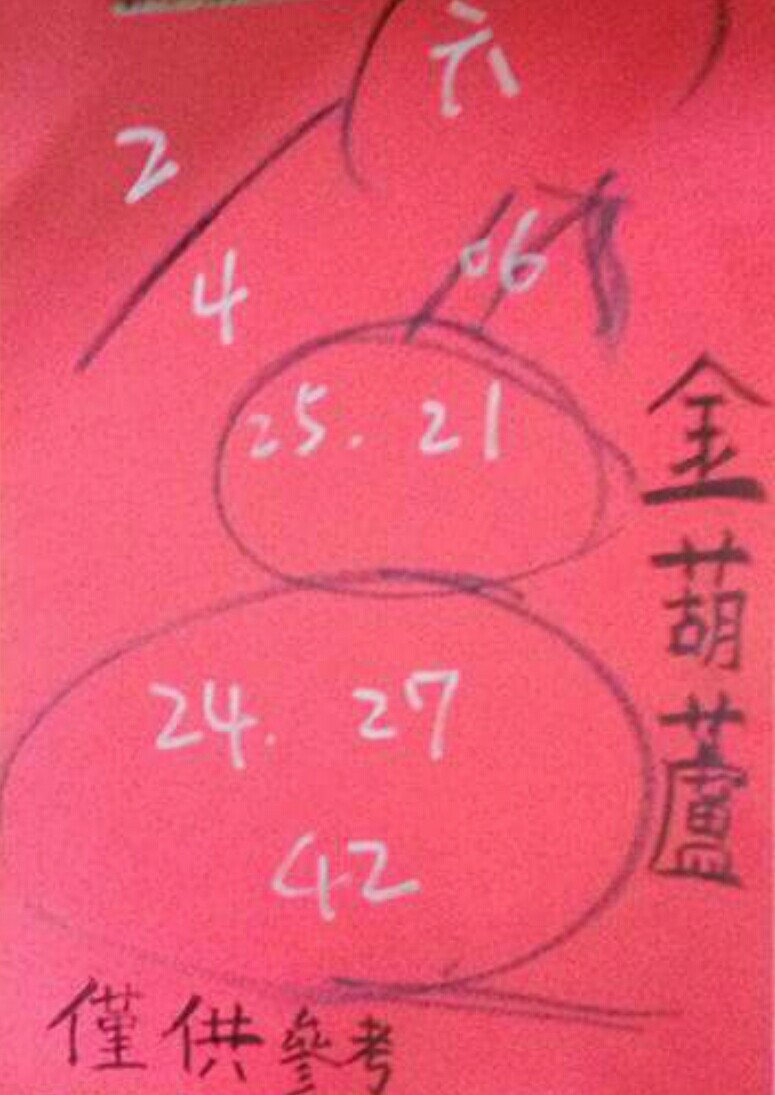 六
2
4
06
25. 21
24. 27
42
金葫蘆
僅供參考